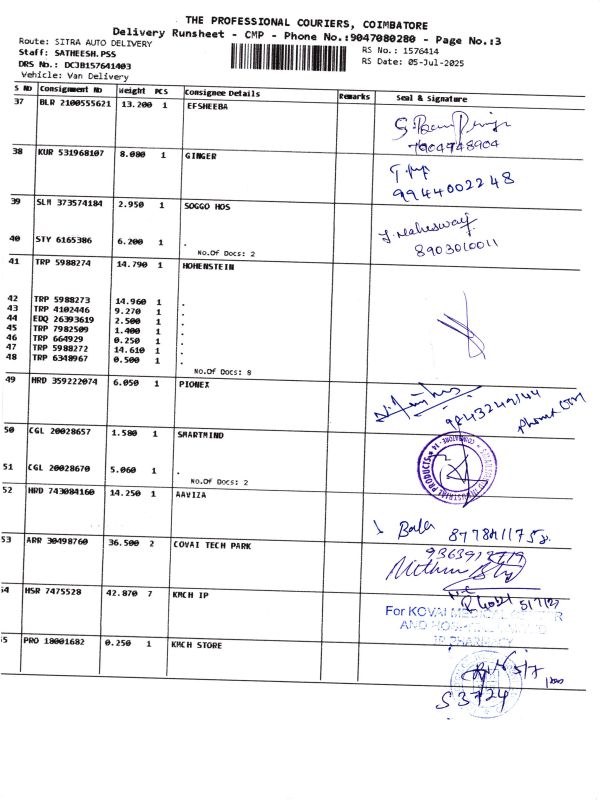 THE PROFESSIONAL COURIERS, COIMBATORE
Delivery Runsheet - CMP - Phone No.:9047080280 - Page No.:3
Route: SITRA AUTO DELIVERY
Staff: SATHEESH.PSS
DRS No.: DCJB157641403
Vehicle: Van Delivery
RS No.: 1576414
RS Date: 05-Jul-2025
S NO Consignment No Weight PCS Consignee Details Remarks Seal & Signature
37 BLR 2100555621 13.200 1 EFSHEEBA
7904748904
38 KUR 531968107 8.080 1 GINGER
9944002248
39 SLM 373574184 2.950 1 SOGGO HOS
J. Maheswary
8903010011
40 STY 6165386 6.200 1 .
No.Of Docs: 2
41 TRP 5988274 14.790 1 HOHENSTEIN
42 TRP 5988273 14.960 1 .
43 TRP 4102446 9.270 1 .
44 EDQ 26393619 2.500 1 .
45 TRP 7982509 1.400 1 .
46 TRP 664929 0.250 1 .
47 TRP 5988272 14.610 1 .
48 TRP 6348967 0.500 1 .
No.Of Docs: 8
49 HRD 359222074 6.050 1 PIONEX
9843249144
50 CGL 20028657 1.580 1 SMARTMIND
51 CGL 20028670 5.060 1 .
No.Of Docs: 2
52 HRD 743084160 14.250 1 AAVIZA
Bala
53 ARR 30498760 36.500 2 COVAI TECH PARK
54 HSR 7475528 42.870 7 KMCH IP
For KOVAI MEDICAL CENTER
AND HOSPITAL LIMITED
IP PHARMACY
55 PRO 18001682 0.250 1 KMCH STORE
S3724